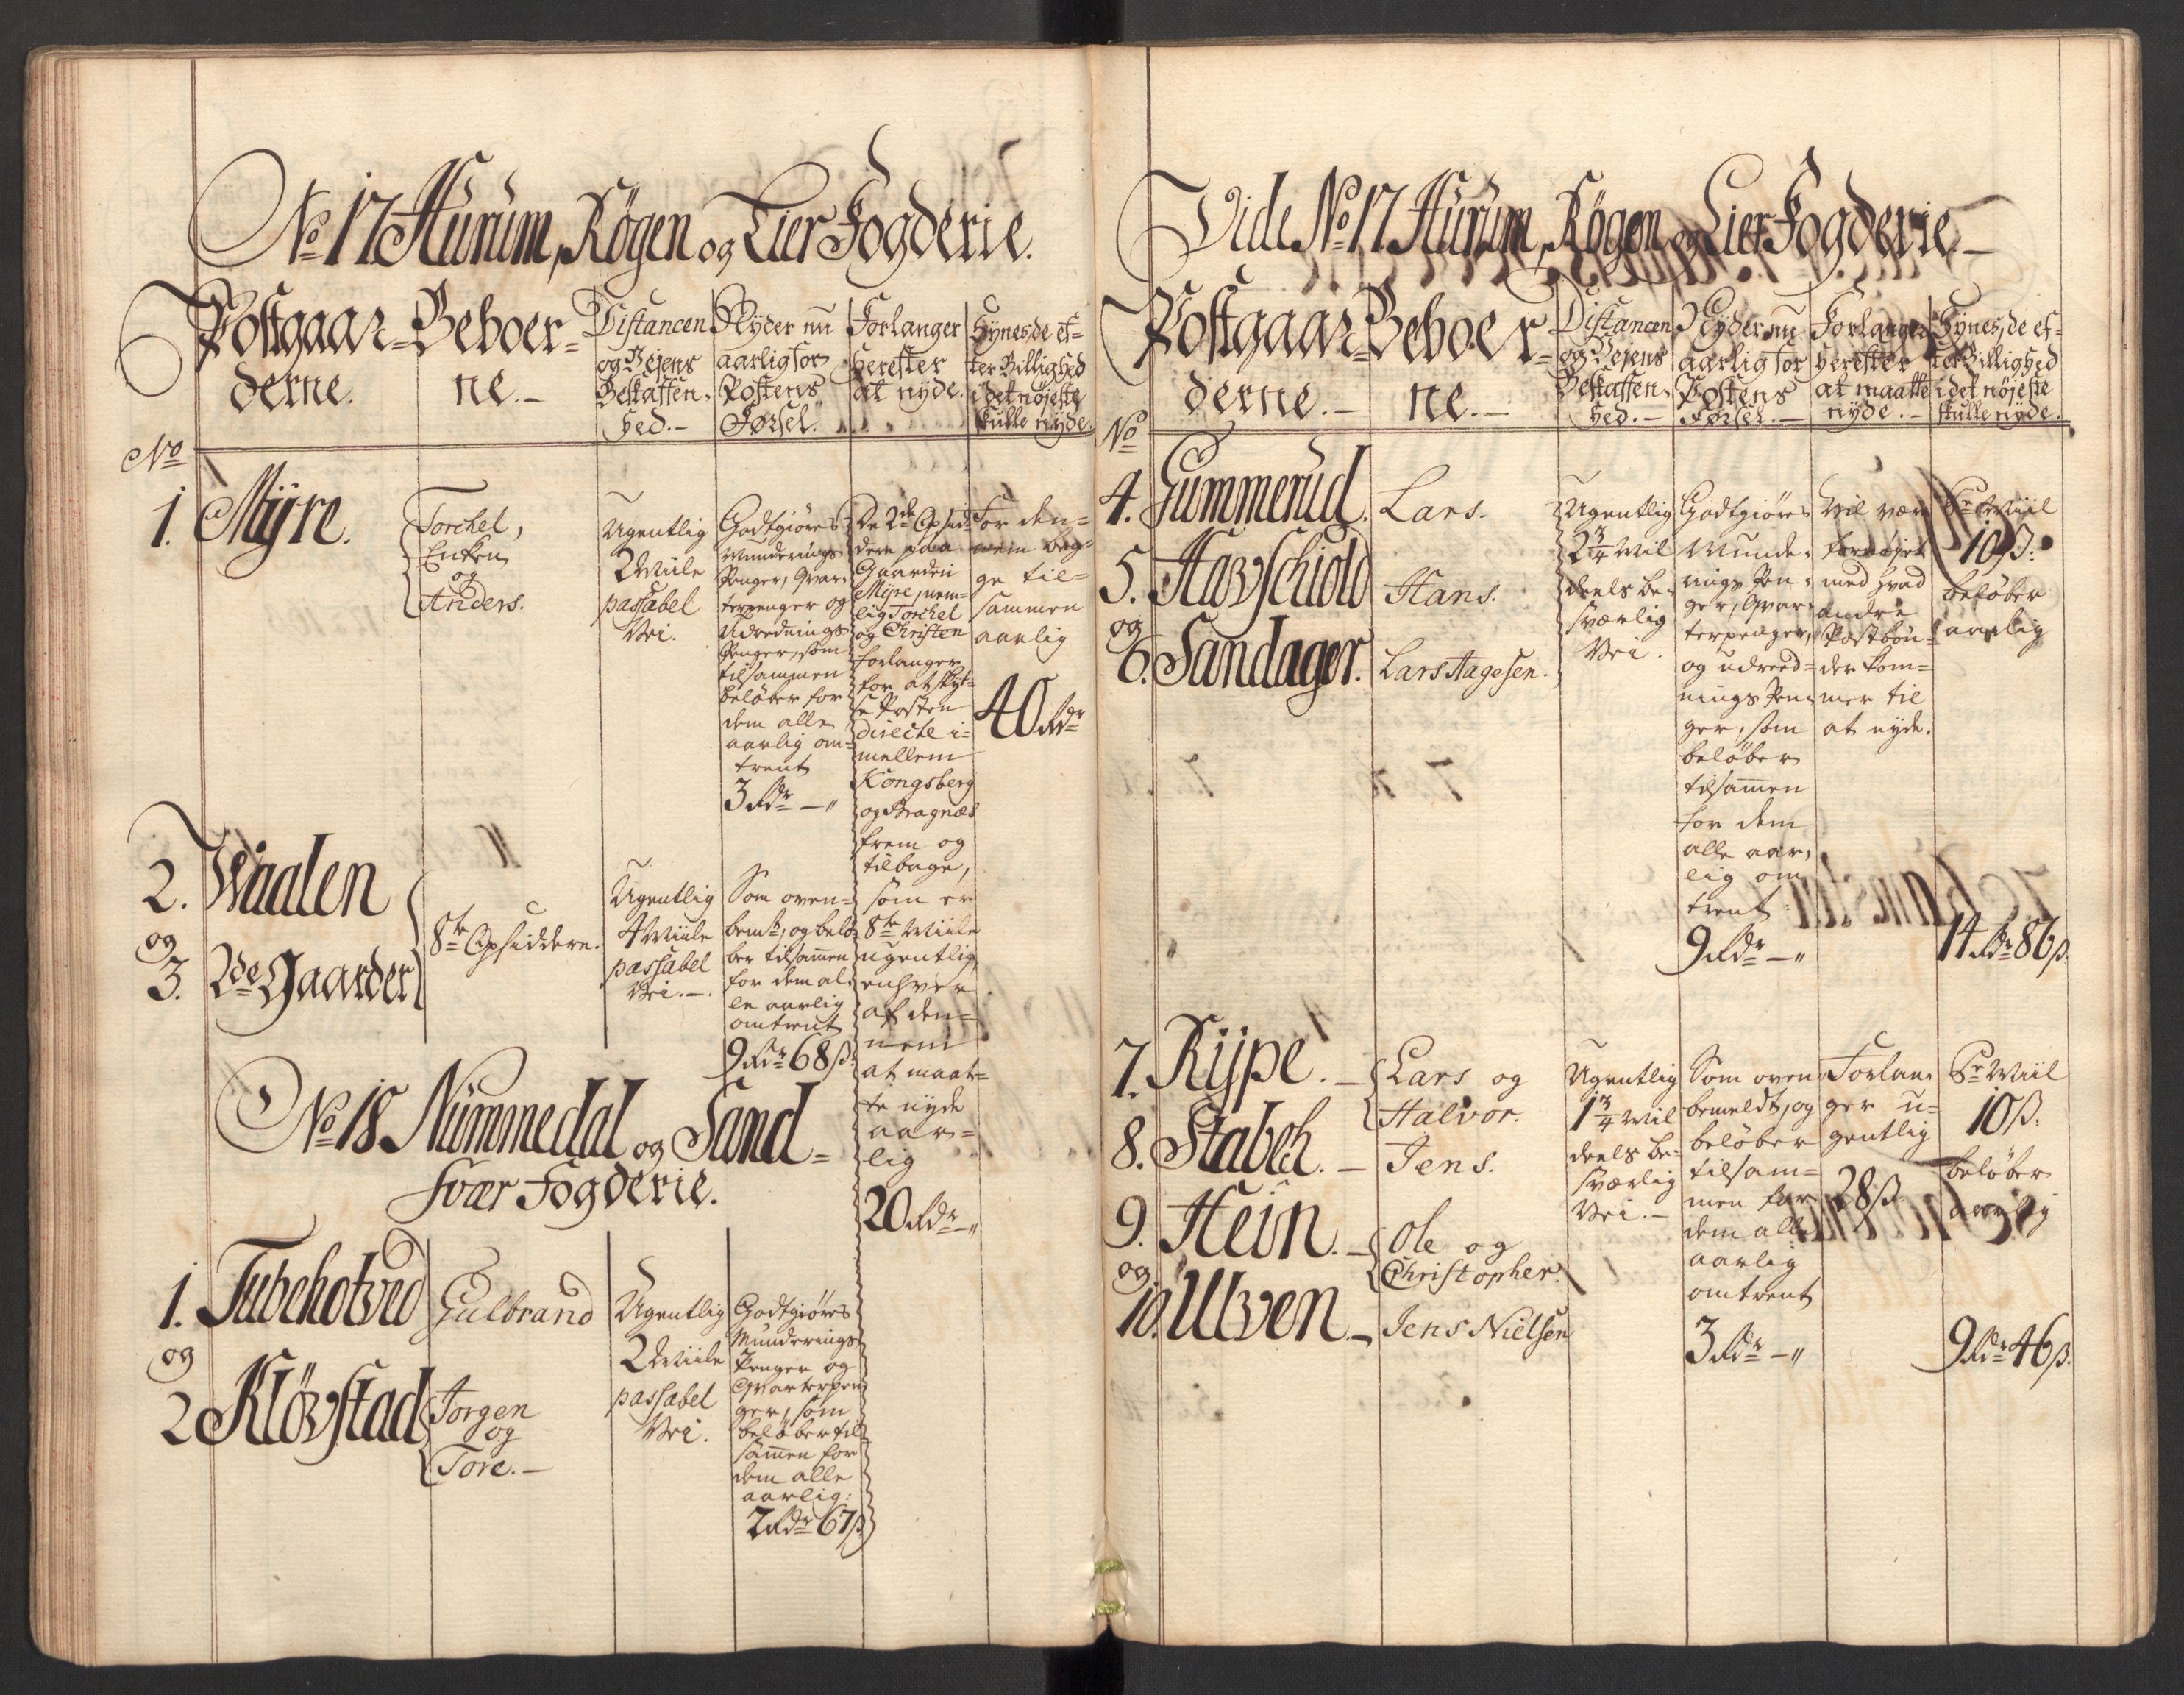 No 17 Hurum, Røgen og Lier Fogderie.
Postgaar-
derne.
Beboer-
ne.-
Distancen
og Vejens
Beskaffen-
hed.-
Nyder nu
aarlig for
Postens
Førsel.
Forlanger
herefter
at nyde.
Synes, de ef-
ter Billighed
i det nøjeste
skulle nyde.
No
1. Myre.
Torchel,
Enken
og
Anders.
Ugentlig
2 Miile
passabel
Vei.
Godtgiøres
Munderings
Penger, Qvar-
terpenger og
Udrednings
Penger, som
tilsammen
beløber for
dem alle
aarlig om-
trent
3 Rdr -"
De 2de Opsid-
dere paa
Gaarden
Myre, nem-
lig Torchel
og Christen
forlanger
for at skyd-
se Posten
directe i-
mellem
Kongsberg
og Bragnæs
frem og
tilbage,
som er
8te Miile
ugentlig,
enhver
af den-
nem
at maat-
te nyde
aar-
lig
20 Rdr -"
For den-
nem beg-
ge til-
sammen
aarlig
40 Rdr
2. Waalen
og
3. 2de Gaarder
8te Opsiddere.
Ugentlig
4 Miile
passabel
Vei.-
Som oven-
bemt, og belø-
ber tilsammen
for dem al-
le aarlig
omtrent
9 Rdr 68 ß.
No 18 Nummedal og Sand-
svær Fogderie.
1. Tubchotved
og
2 Kløvstad
Gulbrand
Jørgen
og
Tore.-
Ugentlig
2 Miile
passabel
Vei.
Godtgiøres
Munderings
Penger og
Qvarterpen
ger, som
beløber til
sammen for
dem alle
aarlig:
2 Rdr 67 ß
Vide No 17 Hurum, Røgen og Lier Fogderie-
Postgaar-
derne.-
Beboer-
ne.-
Distancen
og Vejens
Beskaffen-
hed.-
Nyder nu
aarlig for
Postens
Førsel.-
Forlanger
herefter
at maatte
nyde.-
Synes, de ef-
ter Billighed
i det nøjeste
skulle nyde.
No
4. Gummerud.
5. Havschiold
og
6. Sandager.
Lars.
Hans.
Lars Aagesen.
Ugentlig
2 3/4 Mil
deels be-
sværlig
Vei.
Godtgiøres
Munde-
rings Pen-
ger, Qvar-
terpenger,
og udreed-
nings Pen-
ger, som
beløber
tilsammen
for dem
alle aar-
lig om
trent:
9 Rdr -"
Vil være
fornøjet
med hvad
andre
Postbøn-
der kom-
mer til
at nyde.
Pr Miil
10 ß.
beløber
aarlig
14 Rdr 86 ß.
7. Rÿpe.-
8. Stabch.-
9. Hein.-
og
10. Ulven.-
Lars og
Halvor.
Jens.
Ole og
Christopher.
Jens Nielsen
Ugentlig
1 3/4 Mil
deels be-
sværlig
Vei.-
Som oven
bemeldt, og
beløber
tilsam-
men for
dem alle
aarlig
omtrent
3 Rdr -"
Forlan-
ger u-
gentlig
28 ß.
Pr Miil
10 ß.
beløber
aarlig
9 Rdr 46 ß.